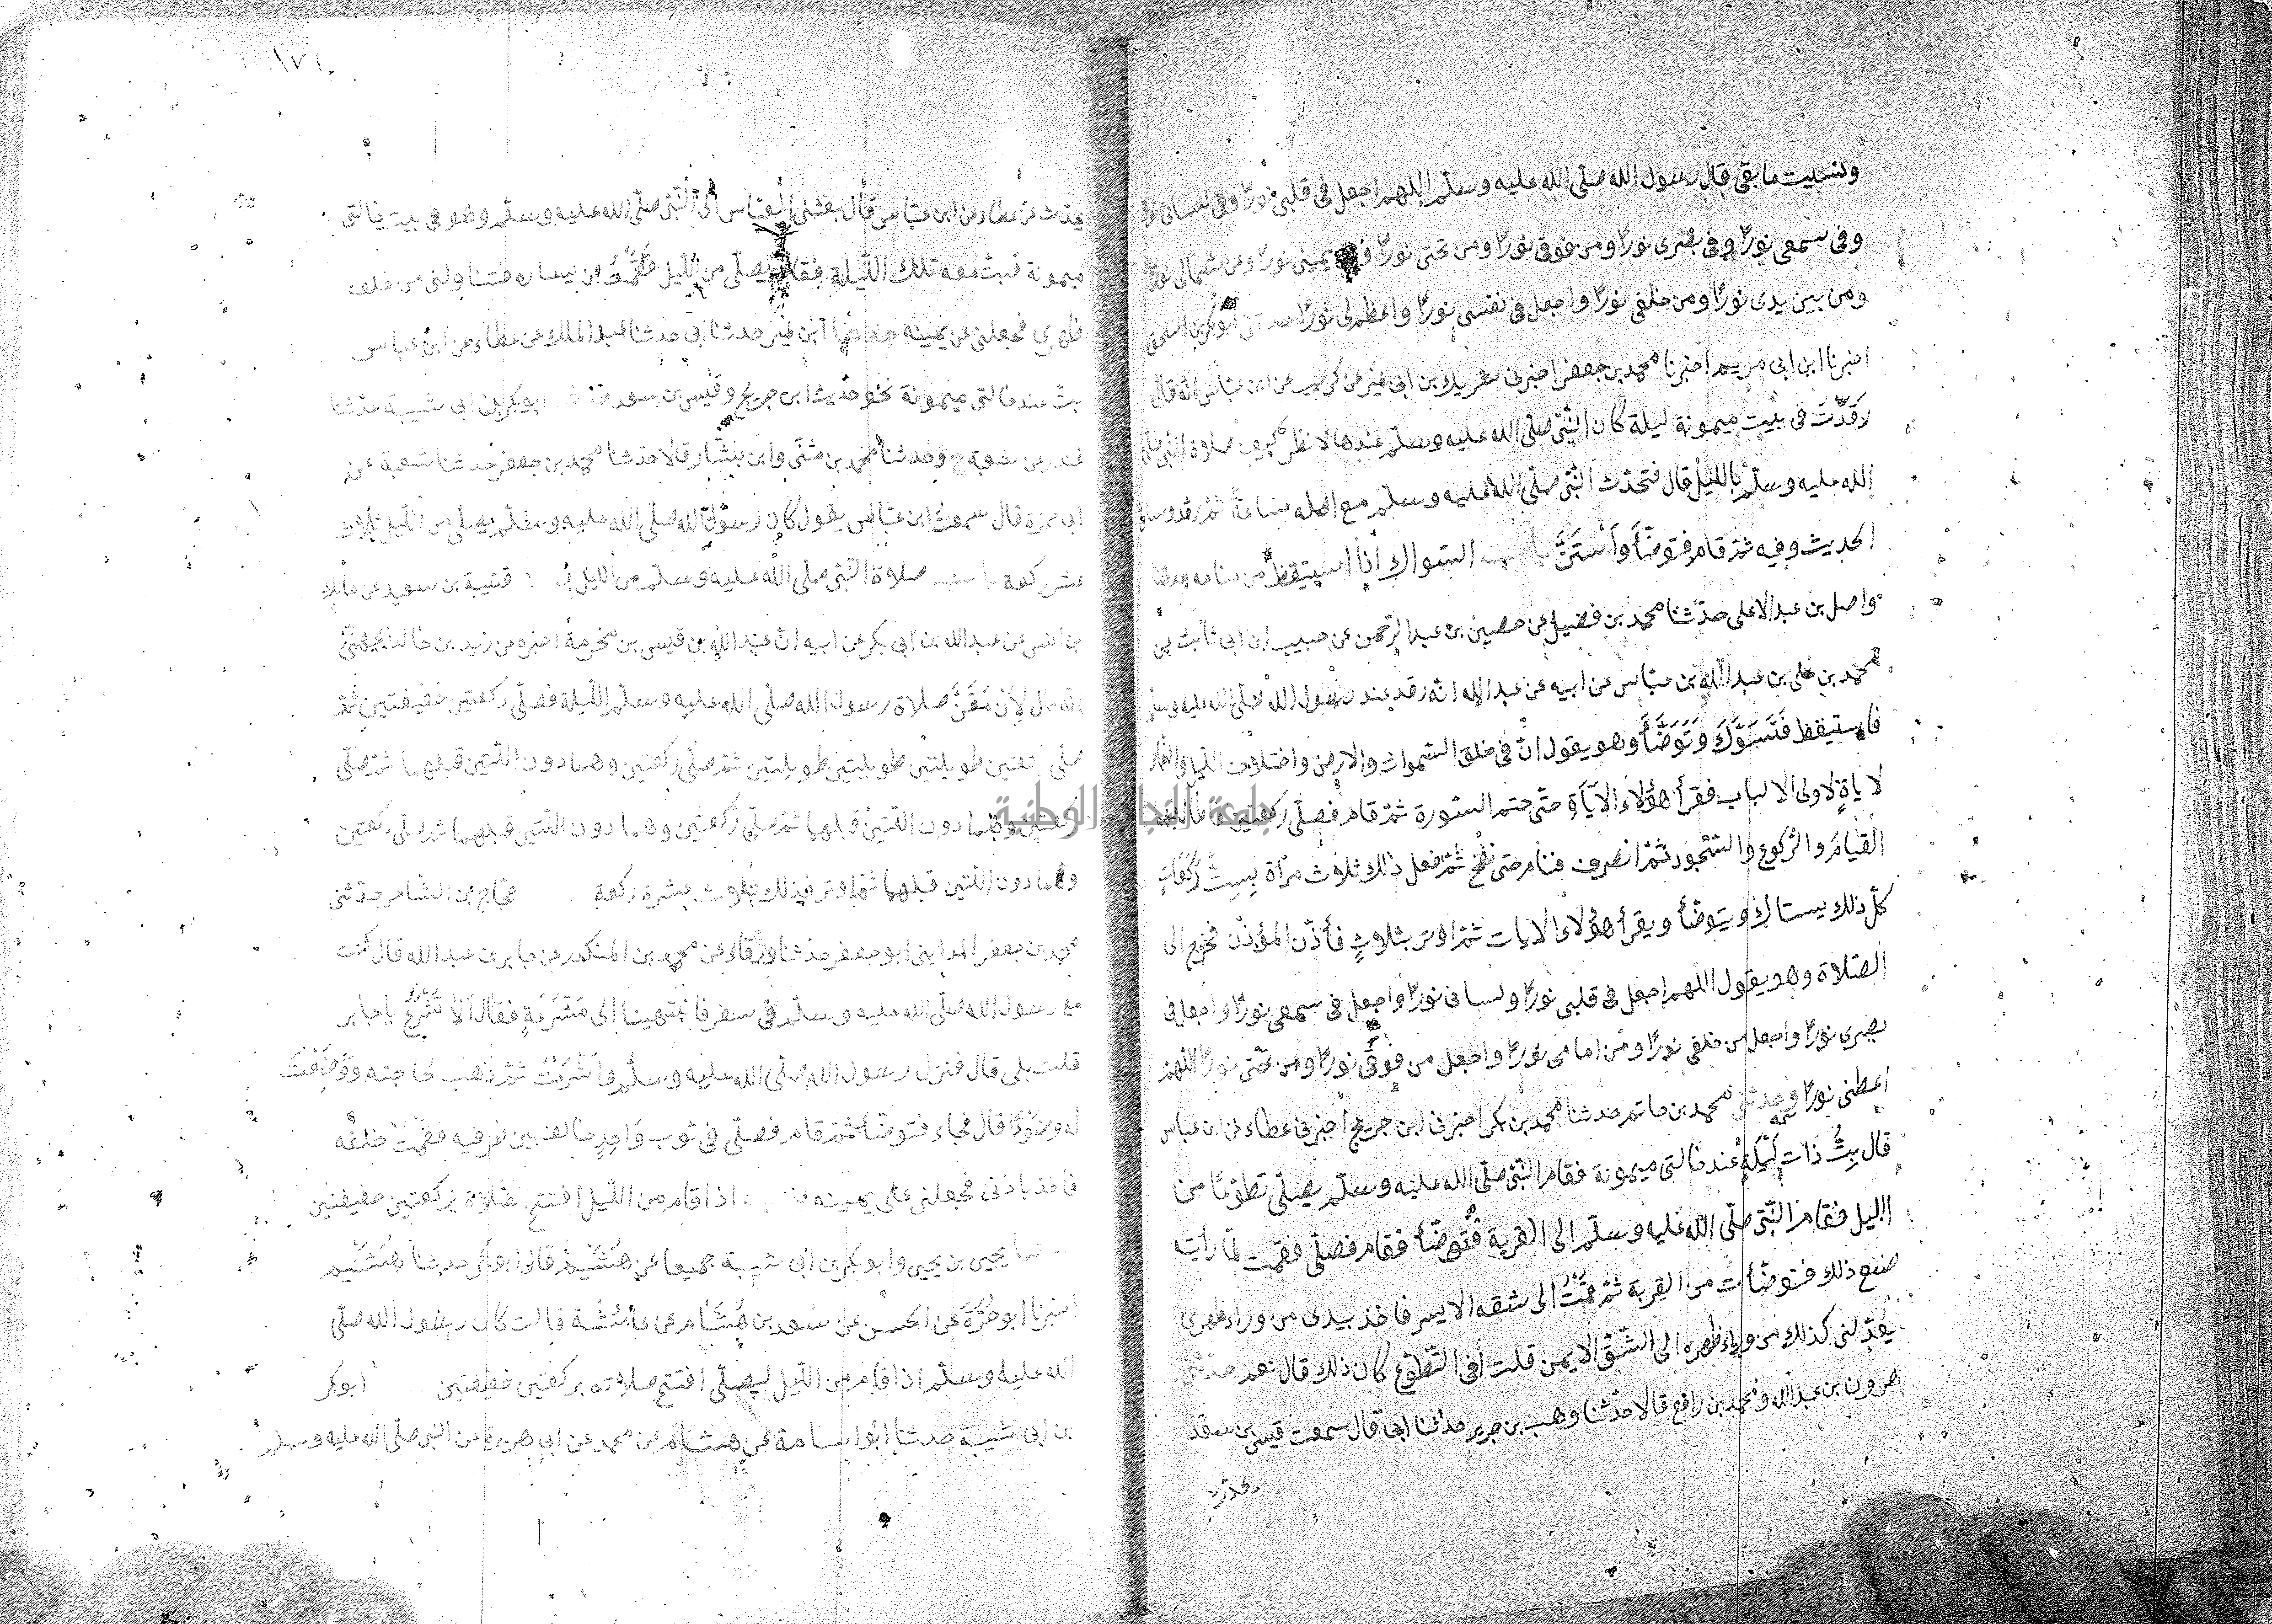 ونسيت ما بقى قال رسول الله صلى الله عليه وسلم اللهم اجعل فى قلبى نورًا وفى لسانى نورًا
وفى سمعى نورًا وفى بصرى نورًا ومن فوقى نورًا ومن تحتى نورًا يمينى نورًا وعن شمالى نورًا
ومن بين يدى نورًا ومن خلفى نورًا واجعل فى نفسى نورًا واعظم لى نورًا حدثنى ابو بكر بن اسحق
اخبرنا ابن ابى مريم اخبرنا محمد بن جعفر اخبرنى شريك بن ابى نمر عن كريب عن ابن عباس انه قال
رَقَدْتُ فى بيت ميمونة ليلة كان النبى صلى الله عليه وسلم عندها لانظر كيف صلاة النبى صلى
الله عليه وسلم بالليل قال فتحدث النبى صلى الله عليه وسلم مع اهله ساعةً ثم رقد وساق
الحديث وفيه ثم قام فتوضأ وَاسْتَنَّ باب السواك اذا استيقظ من منامه حدثنا
واصل بن عبد الاعلى حدثنا محمد بن فضيل عن حصين بن عبد الرحمن عن حبيب ابن ابى ثابت عن
محمد بن على بن عبد الله بن عباس عن ابيه عن عبد الله انه رقد عند رسول الله صلى الله عليه وسلم
فاستيقظ فَتَسَوَّكَ وَتَوَضَّأَ وهو يقول انّ فى خلق السموات والارض واختلاف الليل والنهار
لاياةٍ لاولى الالباب فقرأ هؤلاء الآيَاةِ حتى ختم السورة ثم قام فصلى ركعتين فاطال فيهما
القيامَ والركوع والسجود ثم انصرف فنام حتى نفخ ثم فعل ذلك ثلاث مراة بِسِتِّ رَكَعَاتٍ
كل ذلك يستاك ويتوضأ ويقرأ هؤلاء الايات ثم اوتر بثلاثٍ فأذن المؤذن فخرج الى
الصلاة وهو يقول اللهم اجعل فى قلبى نورًا ولسانى نورًا واجعل فى سمعى نورًا واجعل فى
بصرى نورًا واجعل من خلفى نورًا ومن امامى نورًا واجعل من فوقى نورًا ومن تحتى نورًا اللهم
اعطنى نورًا وحدثنى محمد بن حاتم حدثنا محمد بن بكر اخبرنى ابن جريج اخبرنى عطاء عن ابن عباس
قال بِتُّ ذات لَيْلَةٍ عند خالتى ميمونة فقام النبى صلى الله عليه وسلم يصلى تطوعًا من
الليل فقام النبى صلى الله عليه وسلم الى القربة فتوضأ فقام فصلى فقمت لما رأيته
صنع ذلك فتوضأت من القربة ثم قُمْتُ الى شقه الايسر فاخذ بيدى من وراء ظهرى
يعدلنى كذلك من وراء ظهره الى الشق الايمن قلت أفى التطوع كان ذلك قال نعم حدثنى
هرون بن عبد الله ومحمد بن رافع قالا حدثنا وهب بن جرير حدثنا ابى قال سمعت قيس بن سعد
يحدث
١٧١
يحدث عن عطاء عن ابن عباس قال بعثنى العباس الى النبى صلى الله عليه وسلم وهو فى بيت خالتى
ميمونة فبت معه تلك الليلة فقام يصلى من الليل فَقُمْتُ عن يساره فتناولنى من خلف
ظهرى فجعلنى عن يمينه ابن نمير حدثنا ابى حدثنا عبد الملك عن عطاء عن ابن عباس
بت عند خالتى ميمونة نحو حديث ابن جريج وقيس بن سعد ابو بكر بن ابى شيبة حدثنا
غندر عن شعبة ح وحدثنا محمد بن مثنى وابن بشار قالا حدثنا محمد بن جعفر حدثنا شعبة عن
ابى جمرة قال سمعت ابن عباس يقول كان رسول الله صلى الله عليه وسلم يصلى من الليل ثلاث
عشر ركعة باب صلاة النبى صلى الله عليه وسلم من الليل قتيبة بن سعيد عن مالك
بن انس عن عبد الله بن ابى بكر عن ابيه ان عبد الله بن قيس بن مخرمة اخبره عن زيد بن خالد الجهنى
انه قال لاَرْمُقَنَّ صلاة رسول الله صلى الله عليه وسلم الليلة فصلى ركعتين خفيفتين ثم
صلى ركعتين طويلتين طويلتين طويلتين ثم صلى ركعتين وهما دون اللتين قبلهما ثم صلى
ركعتين وهما دون اللتين قبلهما ثم صلى ركعتين وهما دون اللتين قبلهما ثم صلى ركعتين
وهما دون اللتين قبلهما ثم اوتر فذلك ثلاث عشرة ركعة حجاج بن الشاعر حدثنى
محمد بن جعفر المداينى ابو جعفر حدثنا ورقاء عن محمد بن المنكدر عن جابر بن عبد الله قال كنت
مع رسول الله صلى الله عليه وسلم فى سفر فانتهينا الى مَشْرَعَةٍ فقال اَلاَ تُشْرِعُ يا جابر
قلت بلى قال فنزل رسول الله صلى الله عليه وسلم واَشْرَعْتُ ثم ذهب لحاجته وَوَضَعْتُ
له وضوءًا قال فجاء فتوضأ ثم قام فصلى فى ثوب وَاحِدٍ خالف بين طرفيه فقمت خلفه
فاخذ باذنى فجعلنى على يمينه اذا قام من الليل افتتح صلاة بركعتين خفيفتين
يحيى بن يحيى وابو بكر بن ابى شيبة جميعا عن هُشَيْمٍ قال ابو بكر حدثنا هُشَيْم
اخبرنا ابو حُرَّةَ عن الحسن عن سعد بن هِشَام عن عائشة قالت كان رسول الله صلى
الله عليه وسلم اذا قام من الليل ليصلى افتتح صلاته بركعتين خفيفتين ابو بكر
بن ابى شيبة حدثنا ابو اسامة عن هشام عن محمد عن ابى هريرة عن النبى صلى الله عليه وسلم
جامعة النجاح الوطنية